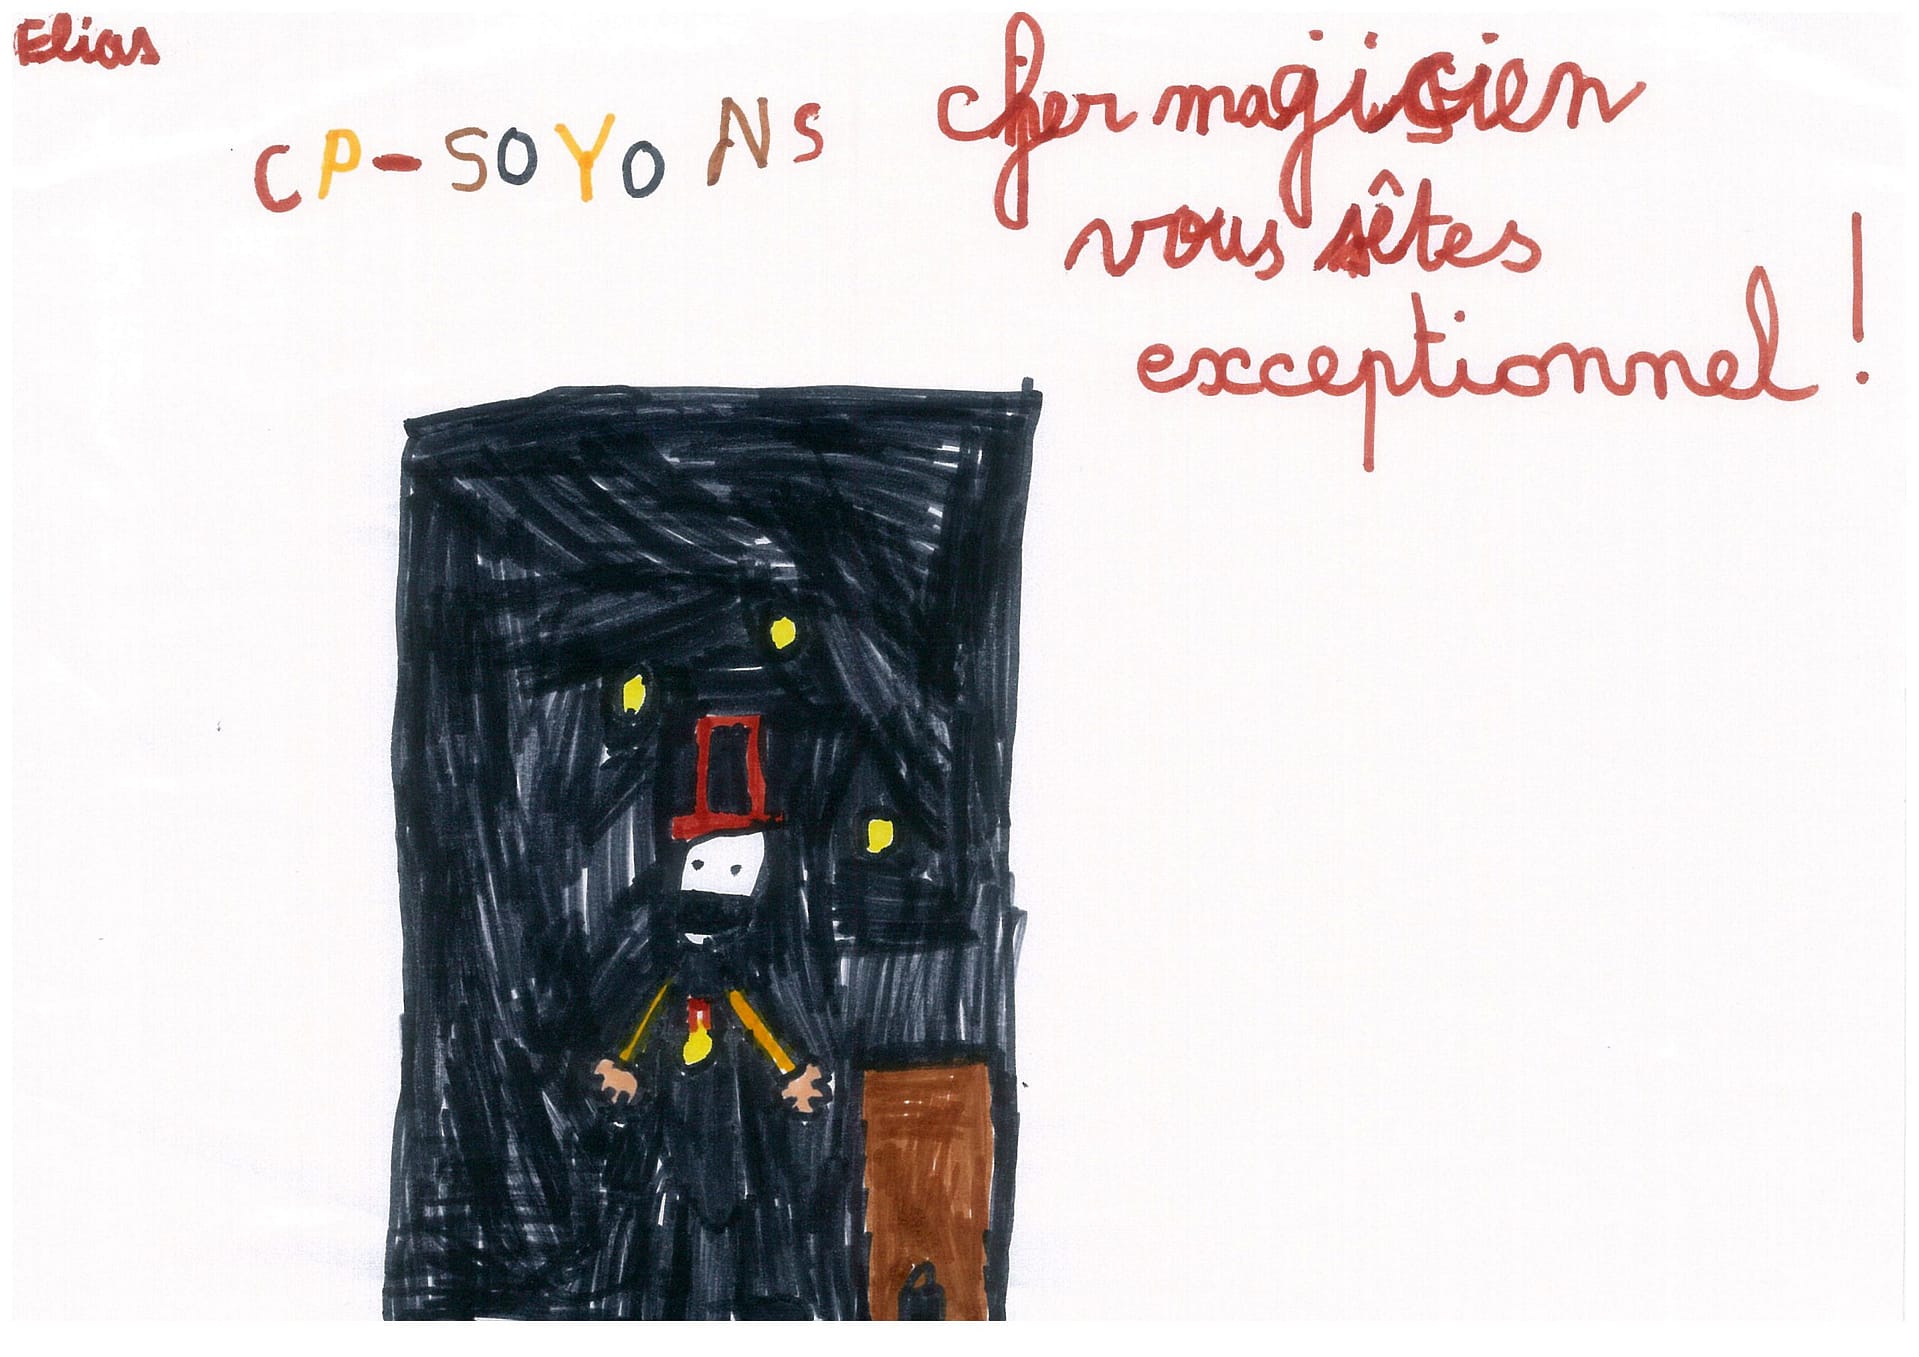 Elias
CP-SOYONS
cher magicien
vous êtes
exceptionnel !